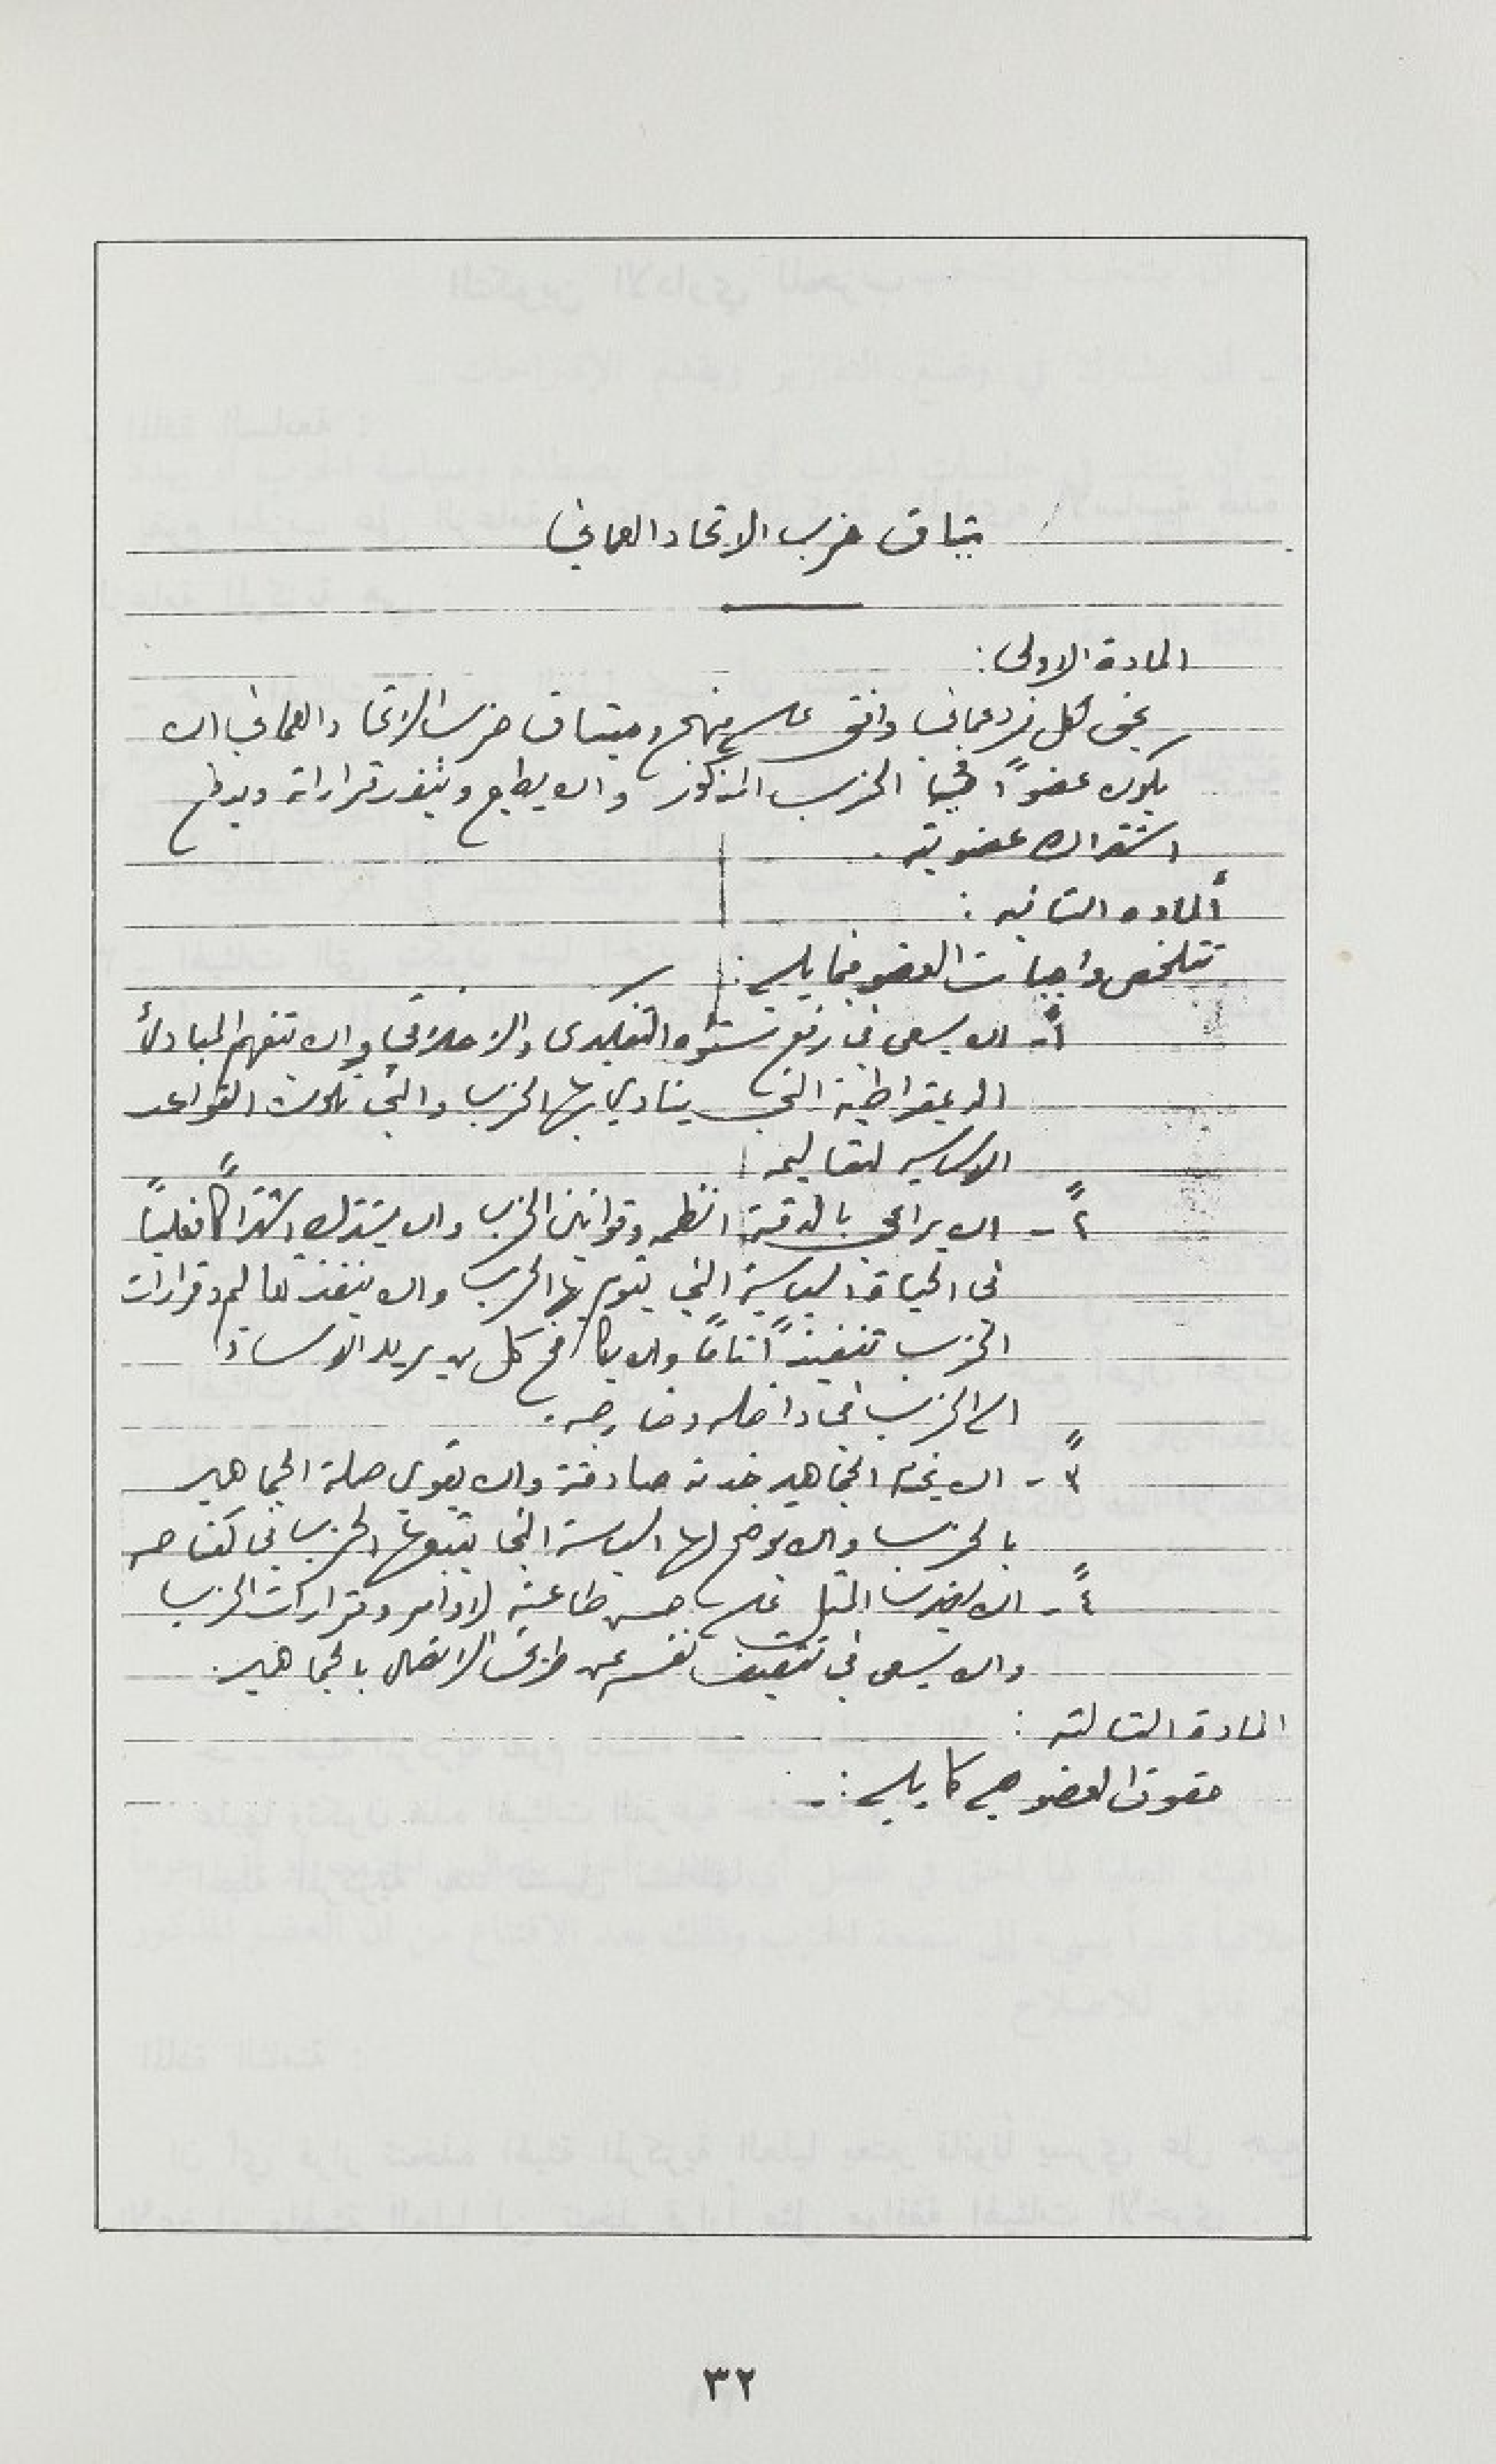 ميثاق حزب الاتحاد العماني
المادة الاولى:
يحق لكل فرد عماني وافق على منهج وميثاق حزب الاتحاد العماني ان
يكون عضواً في الحزب المذكور وان يطيع وينفذ قراراته ويدفع
اشتراك عضويته.
ألماده الثانيه:
تتلخص واجبات العضو فيما يلي:
١ً- ان يسعى في رفع مستواه التقليدى والاخلاقي وان يتفهم المبادئ
الديمقراطية التي ينادي بها الحزب والتي تكون القواعد
الاساسيه لتعاليمه
٢ً- ان يراعي بالدقة انظمه وقوانين الحزب وان يشترك اشتراكاً فعلياً
في الحياة السياسية التي يقوم بها الحزب وان ينفذ تعاليم وقرارات
الحزب تنفيذاً تاماً وان يكافح كل من يريد الاساءة
الى الحزب في داخله وخارجه.
٣ً- ان يخدم الجماهير خدمة صادقة وان يقوي صلة الجماهير
بالحزب وان يوضح لها السياسة التي يتبعها الحزب في كفاحه
٤ً- ان يضرب المثل على حسن طاعته لاوامر وقرارات الحزب
وان يسعى في تثقيف نفسه عن طريق الاتصال بالجماهير.
المادة الثالثه:
حقوق العضو هي كما يلي:-
٣٢